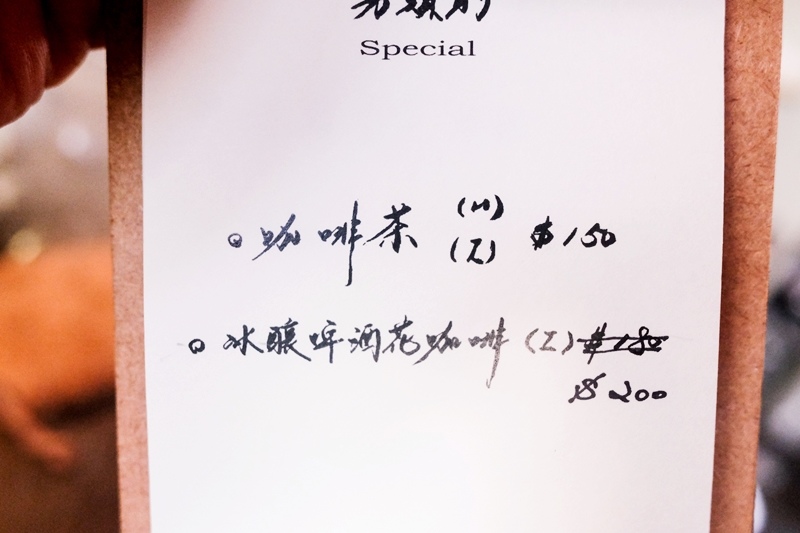 Special
。咖啡茶 (H) $150
(I)
。冰釀啤酒花咖啡 (I) $180
$200